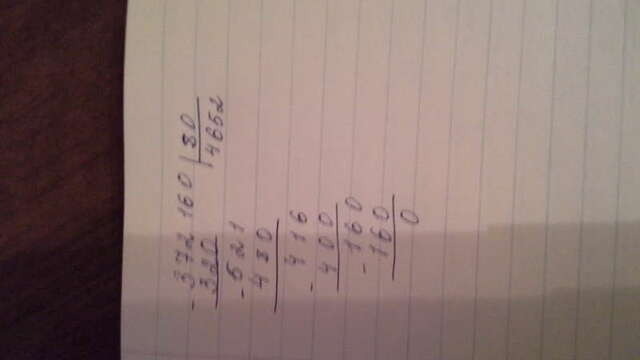 - 372 160 | 80
320 | 4652
- 521
480
- 416
400
- 160
160
0